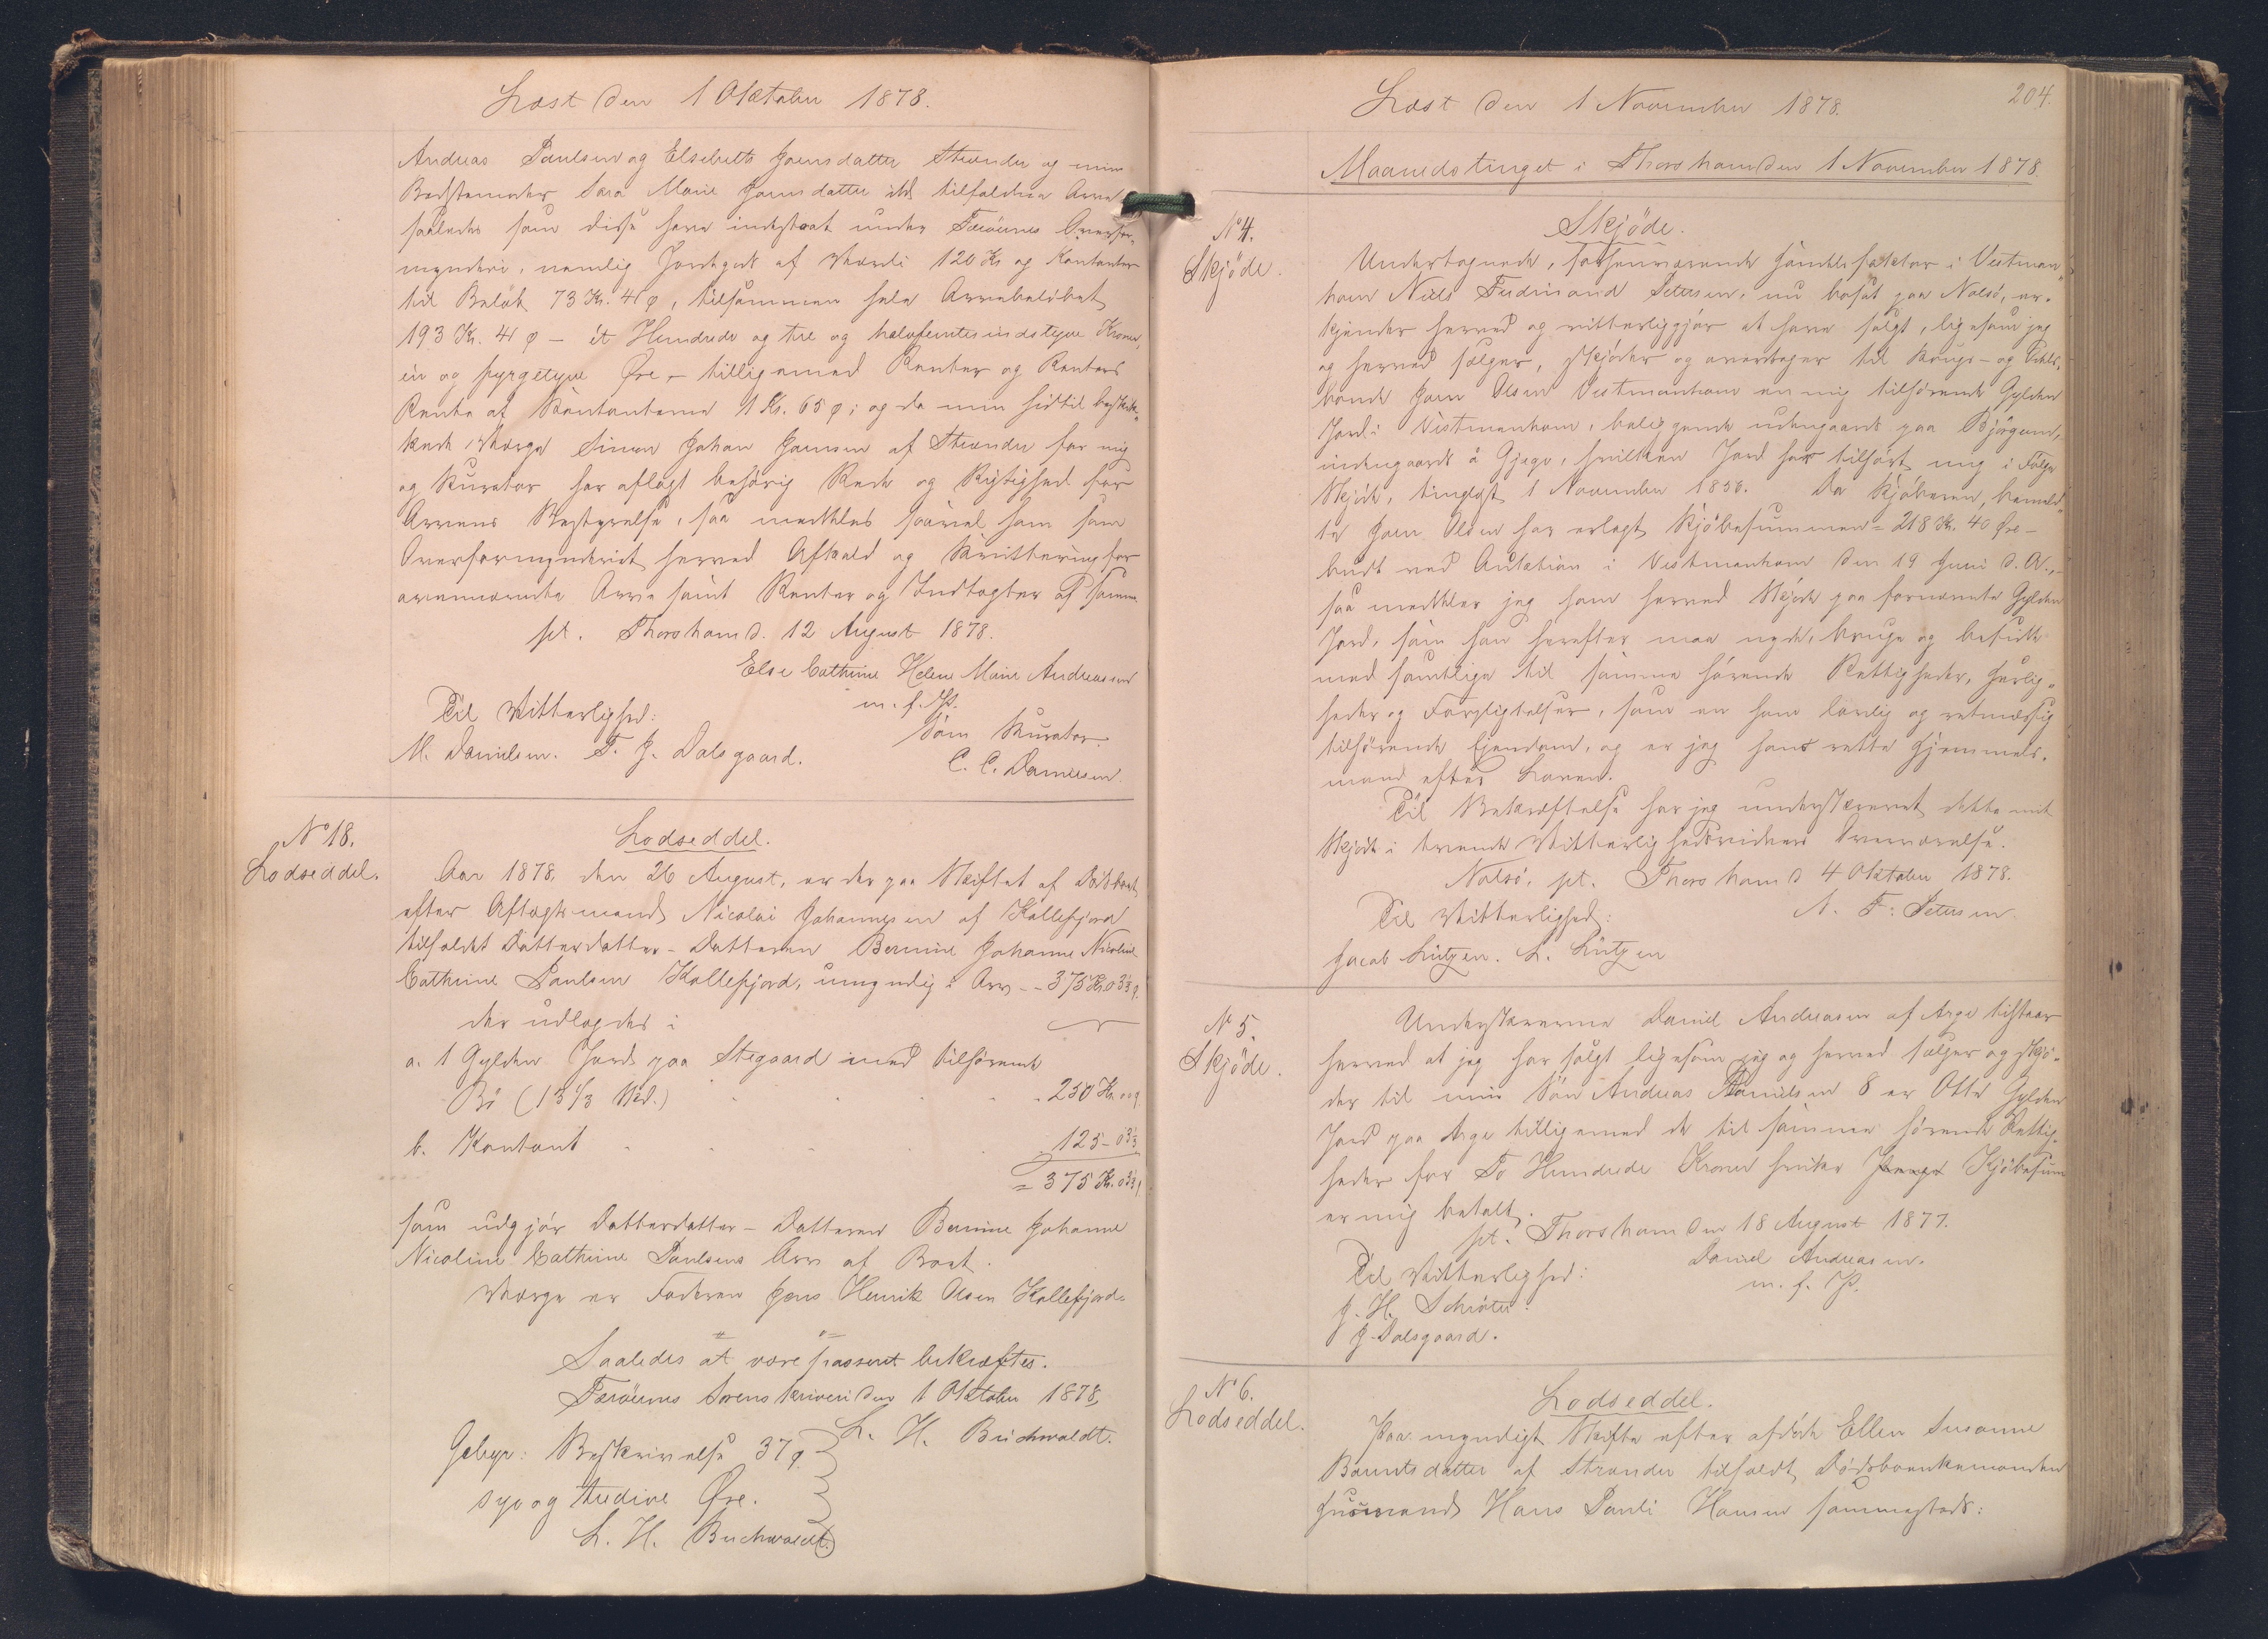 Læst den 1 Oktober 1878.
Andreas Poulsen og Elsebeth Joensdatter Strænder og min
Bedstemoder Sara Marie Joensdatter ibd tilfaldne Arv
saaledes som disse have indestaaet under Færöernes Overfor-
mynderi, nemlig Jordegods af Værdi 120 Kr og Kontanter
til Beløb 73 Kr. 41 ø, tilsammen hele Arvebeløbet
193 Kr. 41 ø – ét Hundrede og tre og halvfemtesindstyve Kroner,
én og fyrgetyve Øre, – tilligemed Renter og Renters
Rente af Kontanterne 1 Kr. 65 ø; og da min hidtil beskik-
kede Værge Simon Johan Joensen af Strænder for mig
og Kurator har aflagt behörig Rede og Rigtighed for
Arvens Bestyrelse, saa meddeles saavel ham som
Overformynderiet herved Afkald og Kvittering for
ovennævnte Arv samt Renter og Indtægter af samme
pt. Thorshavn d. 12 August 1878.
Else Cathrine Helene Marie Andreasen
m. f. P.
Til Vitterlighed:
Som Kurator.
M. Danielsen. T. J. Dalsgaard.
C. C. Danielsen.
No 18.
Lodseddel.
Lodseddel.
Aar 1878, den 26 August, er der paa Skiftet af Dödsboet
efter Aftægtsmand Nicolai Johannesen af Kollefjord
tilfaldet Datterdatter-Datteren Bernine Johanne Nicoline
Cathrine Poulsen Kollefjord, umyndig i Arv -- 375 Kr. 03⅓ ø.
der udlagdes i
a. 1 Gylden Jord paa Stegaard med tilhörende
Bö (13⅓ Md.) 250 Kr. 00 ø
b. Kontant 125 - 03⅓
= 375 Kr. 03⅓ ø
som udgjör Datterdatter-Datteren Bernine Johanne
Nicoline Cathrine Poulsens Arv af Boet.
Værge er Faderen Jens Henrik Olsen Kollefjord.
Saaledes at være passeret bekræftes.
Færöernes Sorenskriveri den 1 Oktober 1878
L. H. Buchwaldt.
Gebyr: Beskrivelse 37 ø
syv og tredive Øre.
L. H. Buchwaldt.
204.
Læst den 1 November 1878.
Maanedstinget i Thorshavn den 1 November 1878.
No 4.
Skjöde.
Skjöde.
Undertegnede, forhenværende Handelsfaktor i Vestman-
havn Niels Ferdinand Petersen, nu bosat paa Nolsö, er-
kjender herved og vitterliggjör at have solgt, ligesom jeg
og herved sælger, skjöder og overdrager til Kongs- og Odels-
bonde Joen Olsen Vestmanhavn en mig tilhörende Gylden
Jord i Vestmanhavn, beliggende udengaards paa Björgum,
indengaards á Gjógv, hvilken Jord har tilhört mig i Fölge
Skjöde, tinglyst 1 November 1856. Da Kjöberen, bemeld-
te Joen Olsen har erlagt Kjöbesummen = 218 Kr. 40 Øre –
budt ved Auktion i Vestmanhavn den 19 Juni d. A.,
saa meddeler jeg ham herved Skjöde paa fornævnte Gylden
Jord, som han herefter maa nyde, bruge og besidde
med samtlige til samme hörende Rettigheder, Herlig-
heder og Forpligtelser, som en ham lovlig og retmæssig
tilhörende Ejendom, og er jeg hans rette Hjemmels-
mand efter Loven.
Til Bekræftelse har jeg underskrevet dette mit
Skjöde i tvende Vitterlighedsvidners Overværelse.
Nolsö, pt. Thorshavn d 4 Oktober 1878.
N. F. Petersen
Til Vitterlighed:
Jacob Lützen. L. Lützen
No 5.
Skjöde.
Underskrevne Daniel Andreasen af Arge tilstaar
herved at jeg har solgt ligesom jeg og herved sælger og skjö-
der til min Sön Andreas Danielsen 8 er Otte Gylden
Jord paa Arge tilligemed de til samme hörende Rettig-
heder for To Hundrede Kroner hvilke Kjöbesum
er mig betalt.
pt. Thorshavn den 18 August 1877.
Daniel Andreasen.
m. f. P.
Til Vitterlighed:
J. H. Schröter.
J. Dalsgaard.
No 6.
Lodseddel.
Lodseddel.
Paa myndigt Skifte efter afdöde Ellen Susanne
Berntsdatter af Strænder tilfaldt Dödsboenkemanden
Huusmand Hans Pauli Hansen sammesteds: